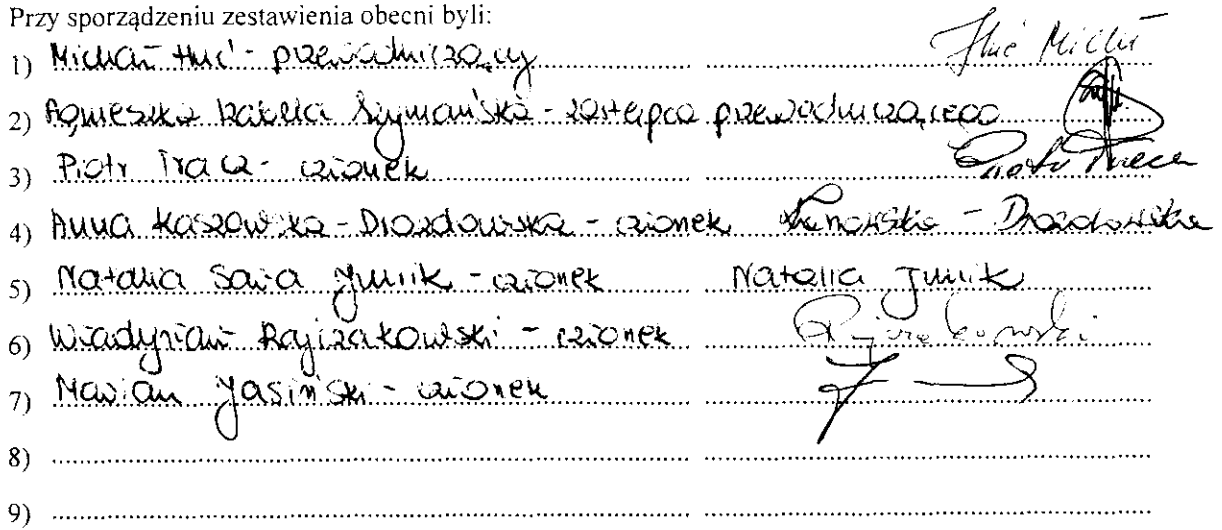 Przy sporządzeniu zestawienia obecni byli:
1) Michał Huć - przewodniczący Huć Michał
2) Agnieszka Izabella Szymańska - zastępca przewodniczącego
3) Piotr Tracz - członek Piotr Tracz
4) Anna Kaszowska-Drozdowska - członek - Drozdowska
5) Natalia Sara Jurik - członek Natalia Jurik
6) Władysław - członek
7) Marian Jasiński - członek
8)
9)